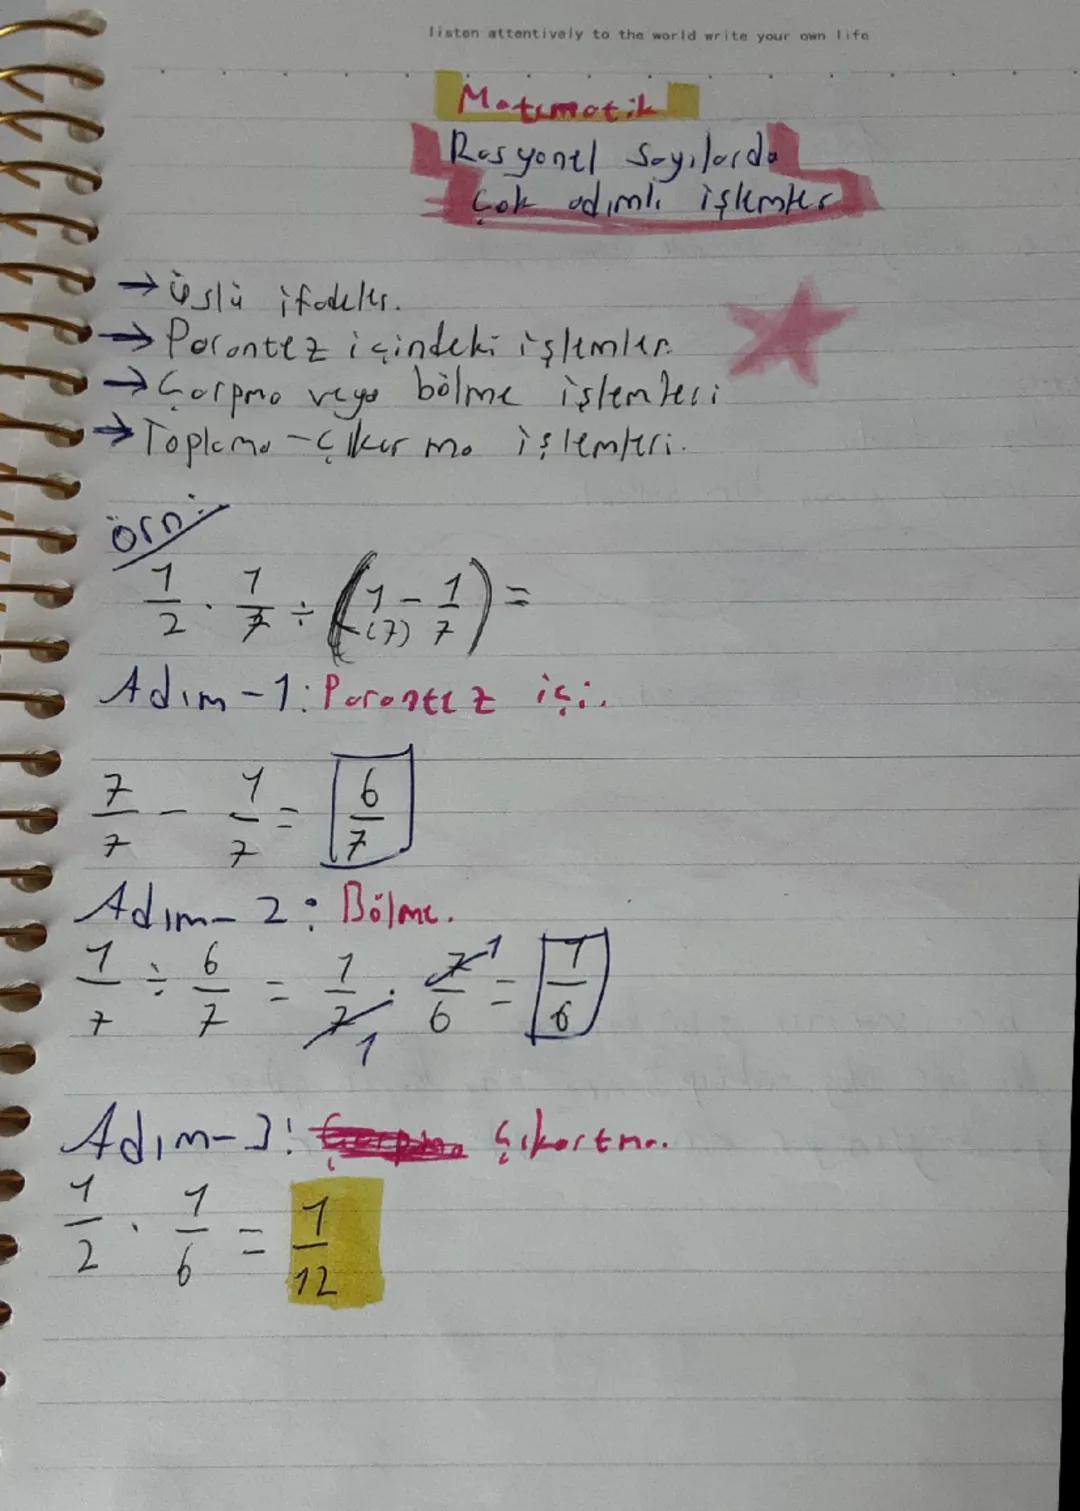 listen attentively to the world write your own life
Matematik
Rasyonel Sayılarda
Çok adımlı işlemler
→ üslü ifadeler.
→ Parantez içindeki işlemler.
→ Çarpma veya bölme işlemleri
→ Toplama - Çıkarma işlemleri.
örn:
1/2 . 1/7 ÷ (1 (7) - 1/7) =
Adım-1: Parantez içi.
7/7 - 1/7 = 6/7
Adım-2: Bölme.
1/7 ÷ 6/7 = 1/7 1 . 7/6 1 = 1/6
Adım-3: Çıkartma.
1/2 . 1/6 = 1/12